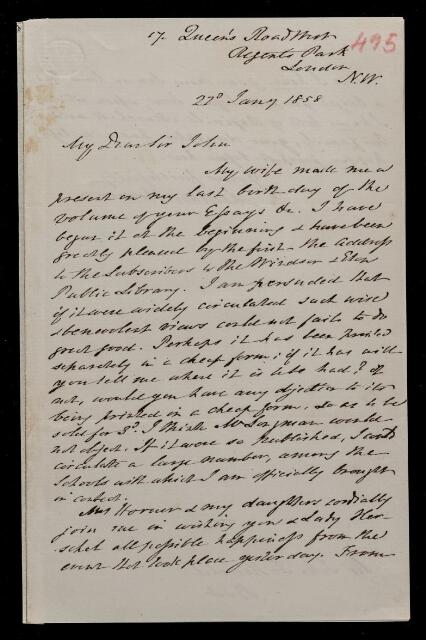 17. Queen's Road West
Regents Park
London
N.W.
495
22d Jany 1858
My Dear Sir John
My wife made me a
present on my last birthday of the
volume of your Essays &c. I have
begun it at the beginning & have been
greatly pleased by the first - the Address
to the Subscribers to the Windsor & Eton
Public Library. I am persuaded that
if it were widely circulated such wise
& benevolent views could not fail to do
great good. Perhaps it has been printed
separately in a cheap form; if it has will
you tell me where it is to be had? If
not, would you have any objection to its
being printed in a cheap form, so as to be
sold for 3d. I think Mr Longman would
not object. If it were so published, I would
circulate a large number, among the
Schools with which I am officially brought
in contact.
Mrs Horner & my daughters cordially
join me in wishing you & Lady Her-
schel all possible happiness from the
event that took place yesterday. From